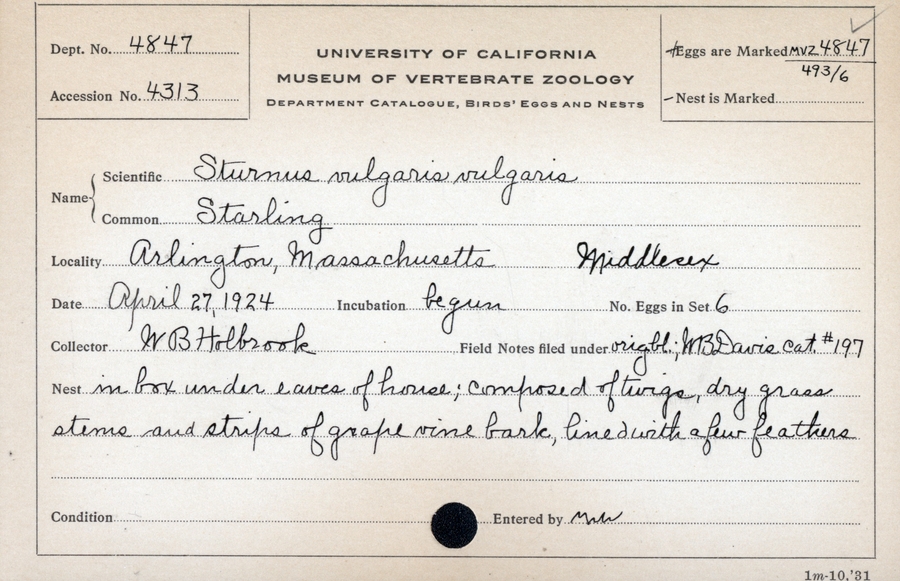 Dept. No. 4847
Accession No. 4313
UNIVERSITY OF CALIFORNIA
MUSEUM OF VERTEBRATE ZOOLOGY
DEPARTMENT CATALOGUE, BIRDS' EGGS AND NESTS
Eggs are Marked MVZ 4847
493/6
Nest is Marked
Name
Scientific Sturnus vulgaris vulgaris
Common Starling
Locality Arlington, Massachusetts Middlesex
Date April 27, 1924 Incubation begun No. Eggs in Set 6
Collector W B Holbrook Field Notes filed under orig bl.; WB Davis cat. #197
Nest in box under eaves of house; composed of twigs, dry grass
stems and strips of grape vine bark, lined with a few feathers
Condition Entered by
1m-10,'31